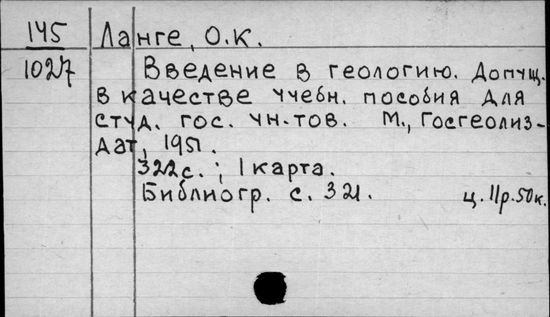 145 Ланге, О.К.
1027 Введение в геологию. Допущ.
в качестве учебн. пособия для
студ. гос. ун-тов. М., Госгеолиз-
дат, 1951.
322с.; 1 карта.
Библиогр. с. 321. ц. 11р.50к.